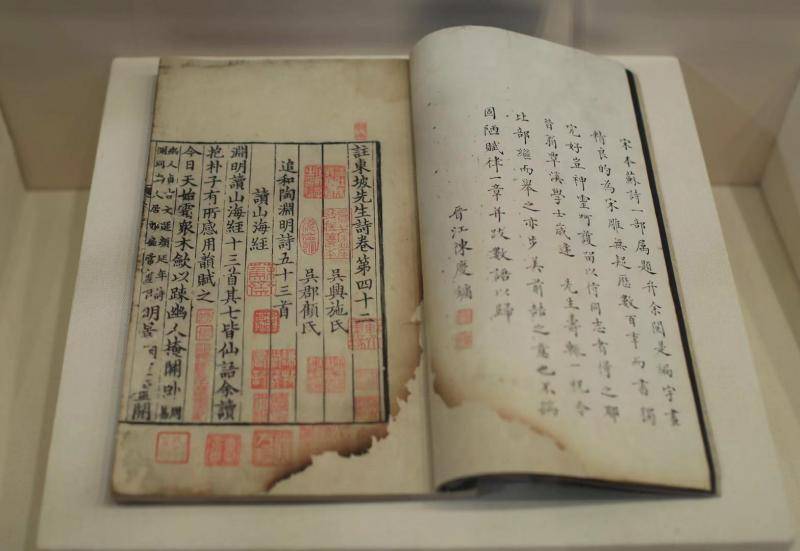 宋本蘇詩一部屬題卉余閱是編字畫
精良的為宋雕無疑歷數百年而書獨
完好豈神靈呵護留以待同志者得之耶
昔翁覃溪學士歲逢 先生壽輒一祝今
比部繼而舉之亦步美前喆之意也不揣
固陋賦律一章并改數語以歸
晉江陳慶鏞
註東坡先生詩卷第四十二
吳興施氏
吳郡顧氏
追和陶淵明詩五十三首
讀山海經
淵明讀山海經十三首其七皆仙語余讀
抱朴子有所感用韻賦之
今日天始霜衆木斂以疎幽人掩關卧周易
幽人貞吉文選顏延年詩 明景